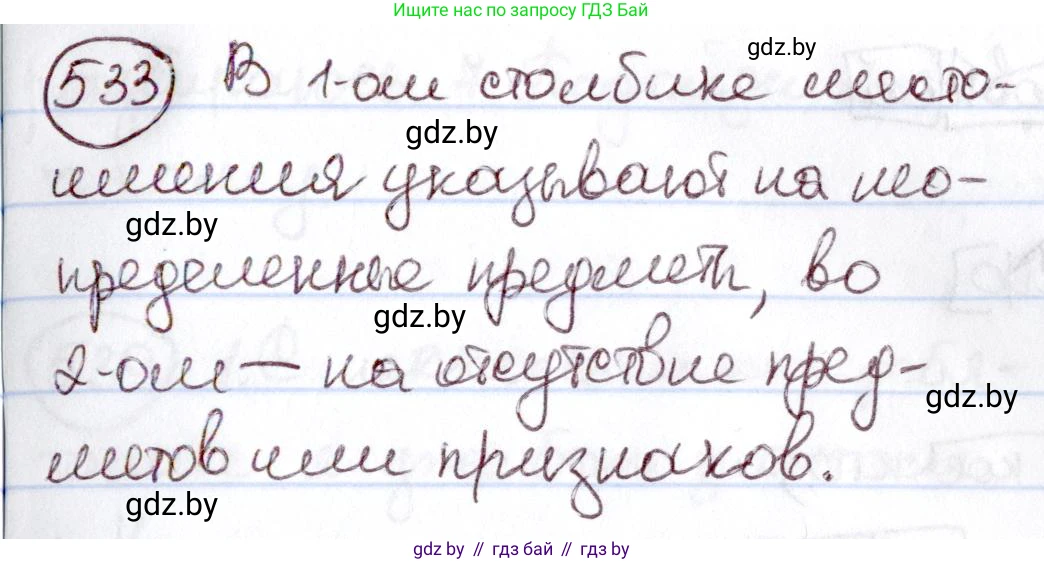 Ищите нас по запросу ГДЗ Бай
533 В 1-ом столбике место-
gdz.by
gdz.by
имения указывают на но-
gdz.by
пределенные предметы, во
gdz.by
2-ом — на отсутствие пред-
gdz.by
метов или признаков.
gdz.by
gdz.by // гдз бай // гдз by